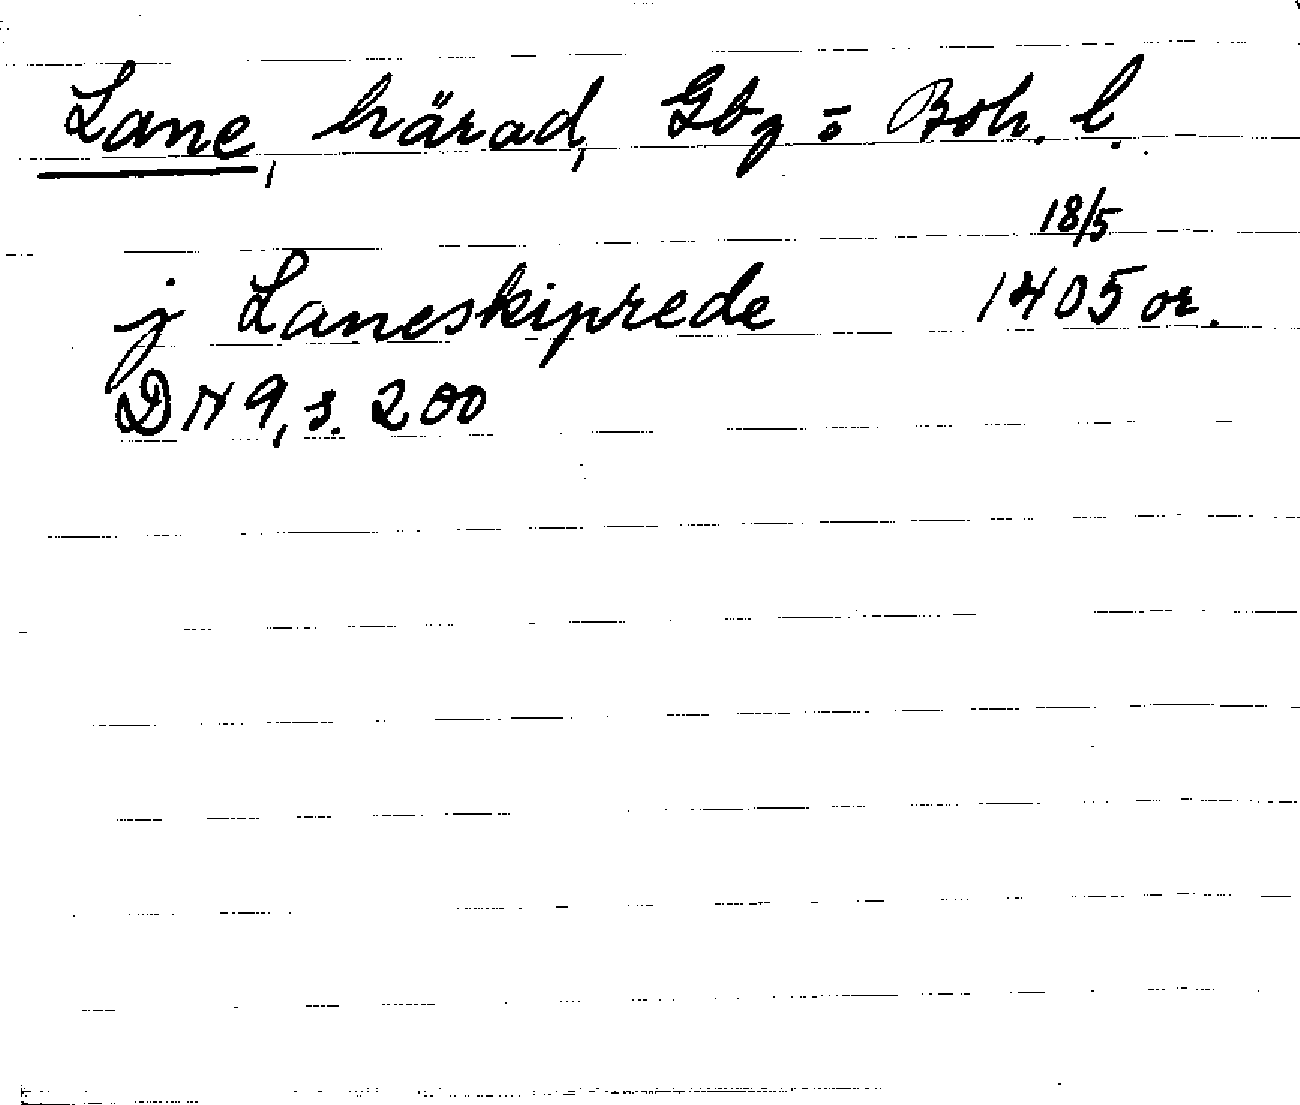 Lane, härad, Gbg o Boh. l.
18/5
j Laneskiprede 1405 or.
DN 9, s. 200